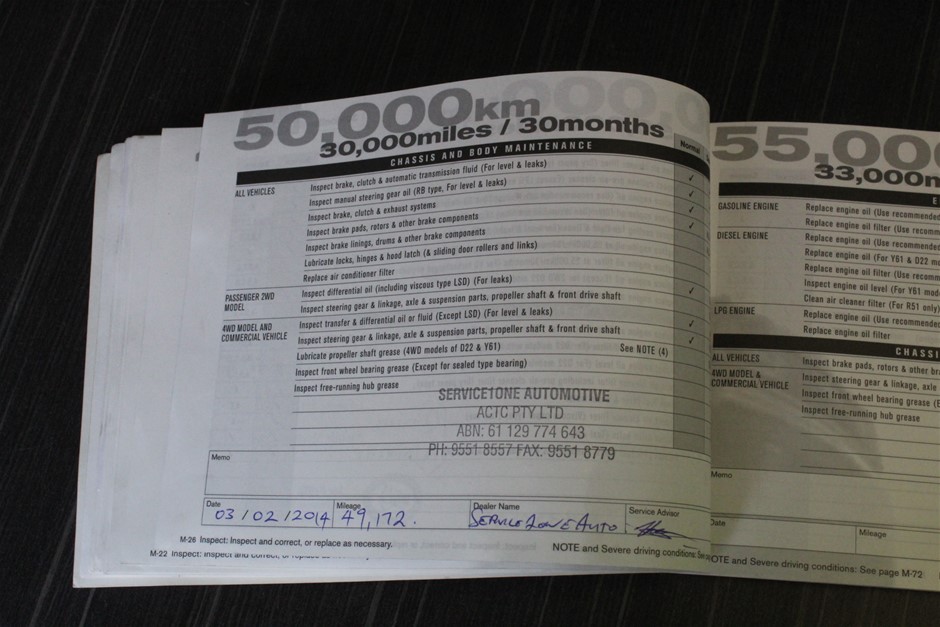 50,000km
30,000miles / 30months
CHASSIS AND BODY MAINTENANCE
Normal
ALL VEHICLES
Inspect brake, clutch & automatic transmission fluid (For level & leaks) ✓
Inspect manual steering gear oil (RB type, For level & leaks) ✓
Inspect brake, clutch & exhaust systems ✓
Inspect brake pads, rotors & other brake components ✓
Inspect brake linings, drums & other brake components
Lubricate locks, hinges & hood latch (& sliding door rollers and links)
Replace air conditioner filter
PASSENGER 2WD MODEL
Inspect differential oil (including viscous type LSD) (For leaks) ✓
Inspect steering gear & linkage, axle & suspension parts, propeller shaft & front drive shaft
4WD MODEL AND COMMERCIAL VEHICLE
Inspect transfer & differential oil or fluid (Except LSD) (For level & leaks) ✓
Inspect steering gear & linkage, axle & suspension parts, propeller shaft & front drive shaft ✓
Lubricate propeller shaft grease (4WD models of D22 & Y61) See NOTE (4)
Inspect front wheel bearing grease (Except for sealed type bearing)
Inspect free-running hub grease
SERVICE1ONE AUTOMOTIVE
ACTC PTY LTD
ABN: 61 129 774 643
PH: 9551 8557 FAX: 9551 8779
Memo
Date Mileage Dealer Name Service Advisor
03/02/2014 49,172. SERVICEZONE AUTO
M-26 Inspect: Inspect and correct, or replace as necessary.
NOTE and Severe driving conditions: See
M-22 Inspect: Inspect and correct, or replace as necessary.
55,00
33,000m
E
GASOLINE ENGINE
Replace engine oil (Use recommended
Replace engine oil filter (Use recomm
DIESEL ENGINE
Replace engine oil (Use recommended
Replace engine oil (For Y61 & D22 mo
Replace engine oil filter (Use recom
Inspect engine oil level (For Y61 mod
Clean air cleaner filter (For R51 only)
LPG ENGINE
Replace engine oil (Use recommended
Replace engine oil filter
CHASSI
ALL VEHICLES
Inspect brake pads, rotors & other bra
4WD MODEL & COMMERCIAL VEHICLE
Inspect steering gear & linkage, axle
Inspect front wheel bearing grease (E
Inspect free-running hub grease
Memo
Date
Mileage
NOTE and Severe driving conditions: See page M-72